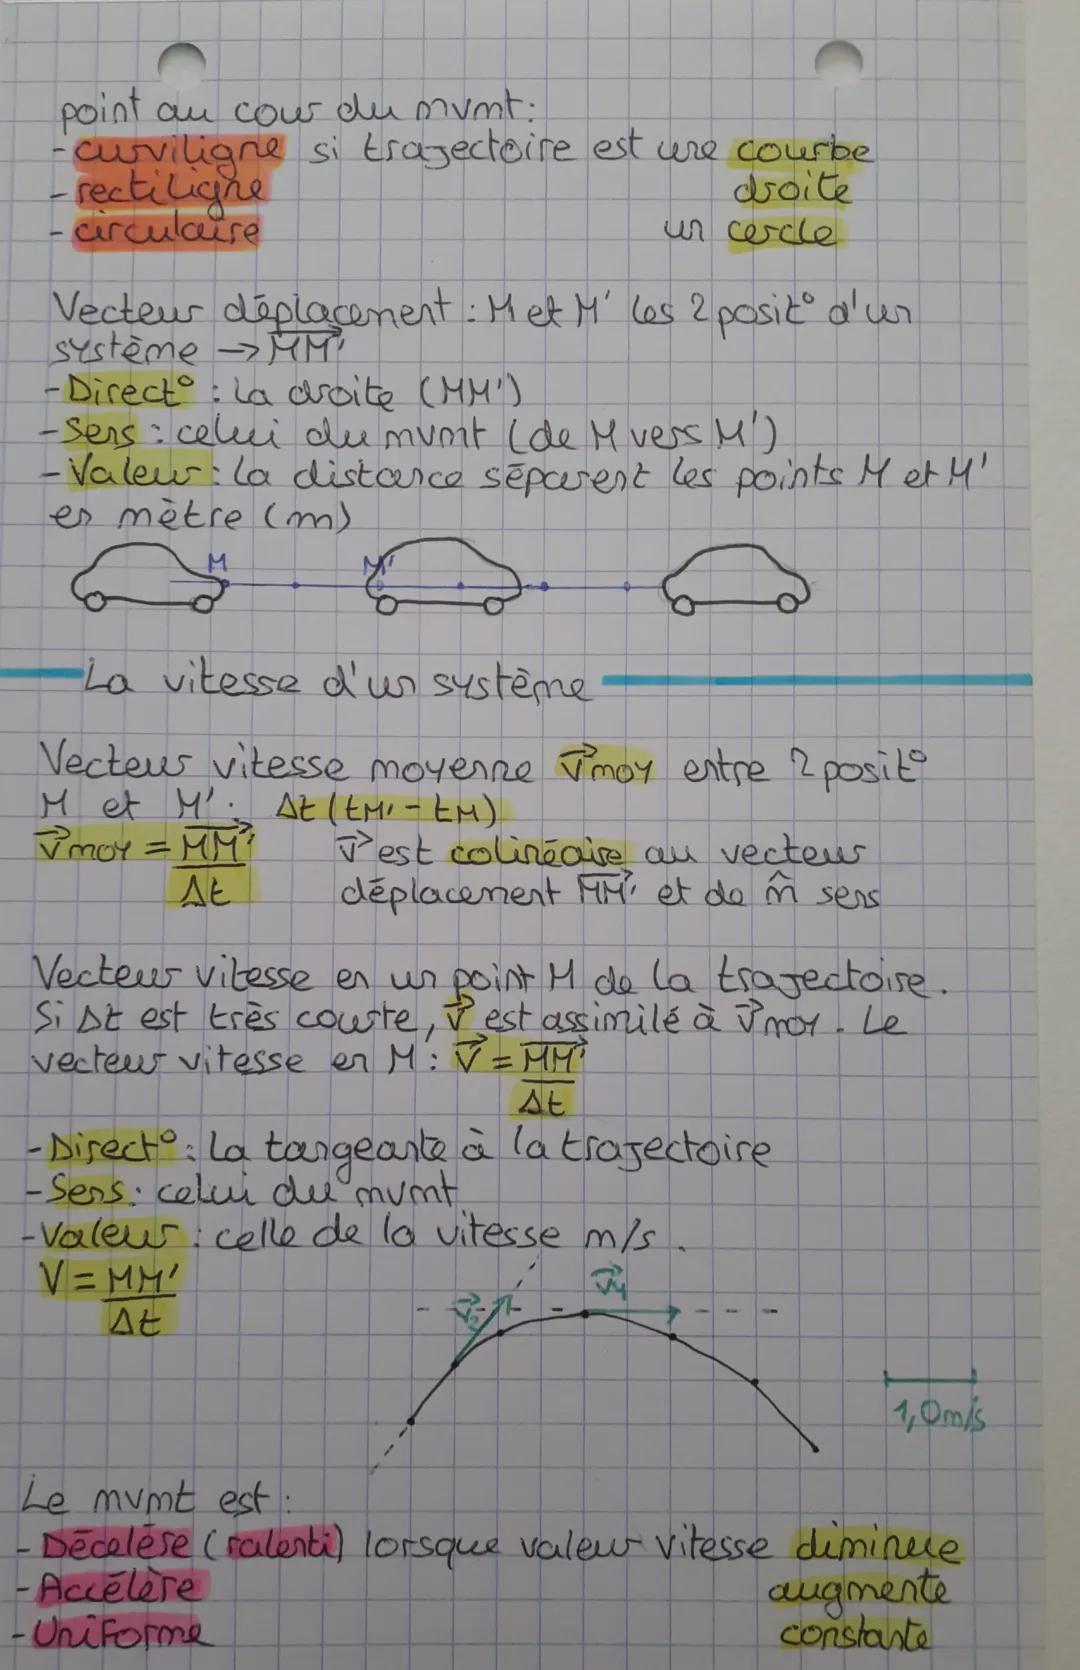 point au cour du mvmt:
- curviligne si trajectoire est une courbe
- rectiligne droite
- circulaire un cercle
Vecteur déplacement : M et M' les 2 posit° d'un
système → MM'
- Direct° : la droite (MM')
- Sens : celui du mvmt (de M vers M')
- Valeur : la distance séparent les points M et M'
en mètre (m)
M M'
La vitesse d'un système
Vecteur vitesse moyenne v⃗moy entre 2 posit°
M et M' : Δt (tM' - tM)
v⃗moy = MM' / Δt
v⃗ est colinéaire au vecteur
déplacement MM' et de m̂ sens
Vecteur vitesse en un point M de la trajectoire.
Si Δt est très courte, v⃗ est assimilé à v⃗moy. Le
vecteur vitesse en M : v⃗ = MM' / Δt
- Direct° : la tangeante à la trajectoire
- Sens : celui du mvmt
- Valeur : celle de la vitesse m/s.
V = MM' / Δt
v⃗2 v⃗4
1,0m/s
Le mvmt est :
- Décélère (ralenti) lorsque valeur vitesse diminue
- Accélère augmente
- Uniforme constante